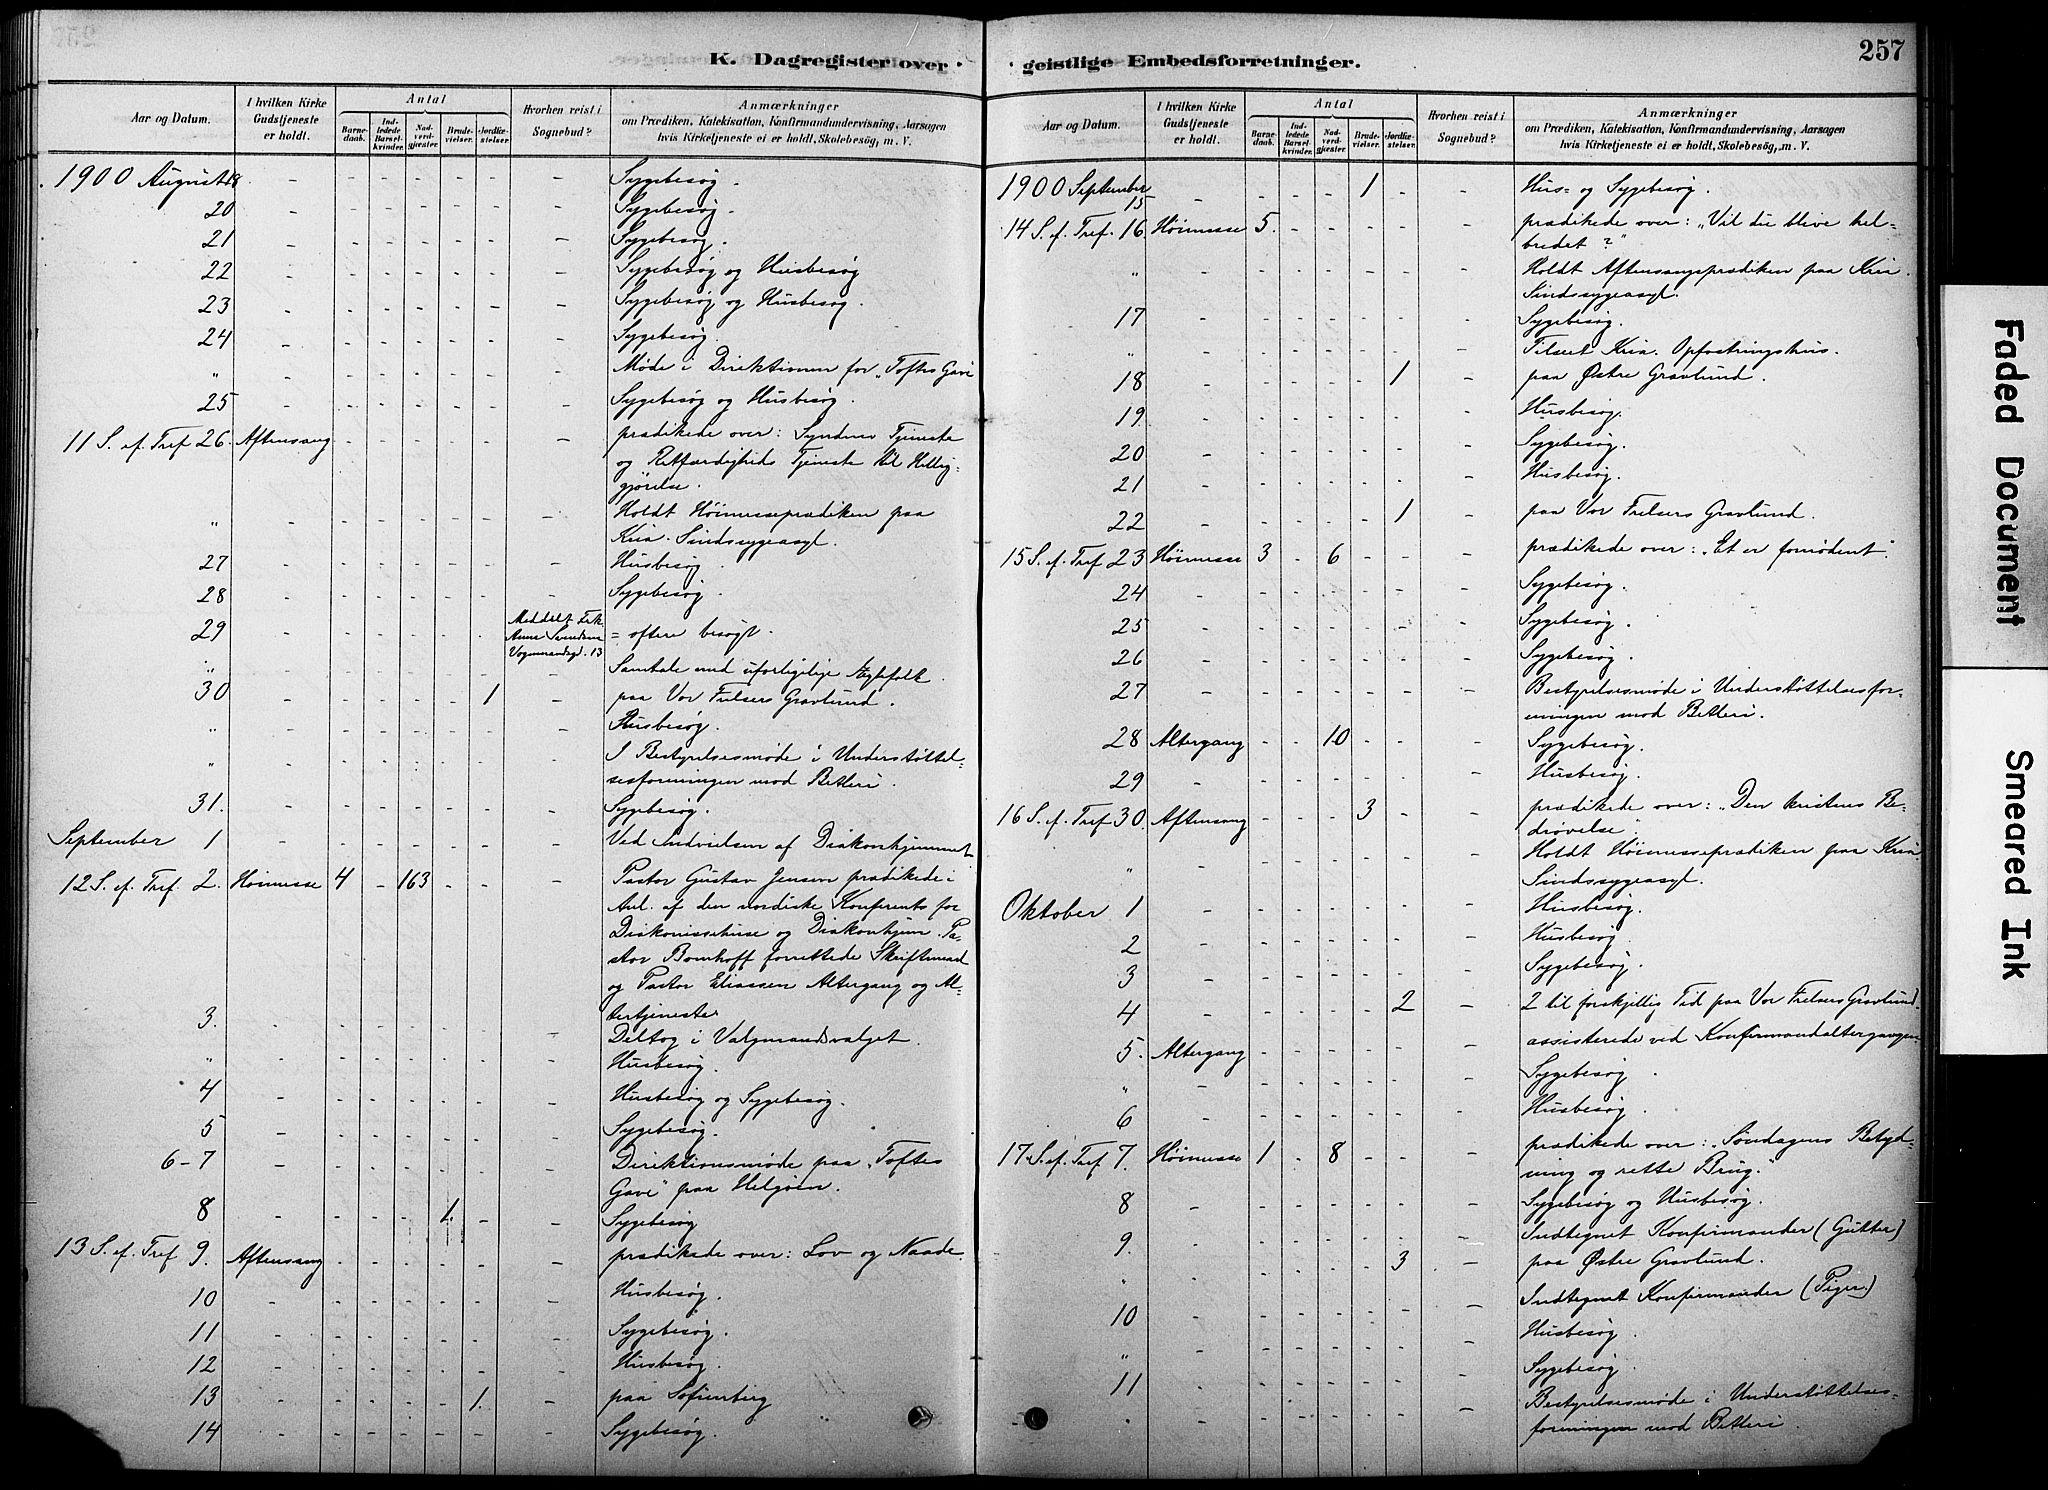 K. Dagregister over
Aar og Datum. | I hvilken Kirke Gudstjeneste er holdt. | Antal | Barnedaab. | Indledede Barselkvinder. | Nadverdgjæster | Brudevielser. | Jordfæstelser. | Hvorhen reist i Sognebud? | Anmærkninger om Prædiken, Katekisation, Konfirmandundervisning, Aarsagen hvis Kirketjeneste ei er holdt, Skolebesøg, m. V.
1900 August 18 - - - - - - - Sygebesøg.
20 - - - - - - - Sygebesøg.
21 - - - - - - - Sygebesøg.
22 - - - - - - - Sygebesøg og Husbesøg
23 - - - - - - - Sygebesøg og Husbesøg.
24 - - - - - - - Sygebesøg.
" - - - - - - - Møde i Direktionen for "Toftes Gave
25 - - - - - - - Sygebesøg og Husbesøg.
11 S. ef. Tref 26. Aftensang - - - - - - prædikede over: Syndens Tjeneste
og Retfærdigheds Tjeneste til Hellig-
gjørelse.
" - - - - - - - Holdt Høimesseprædiken paa
Kria. Sindssygeasyl.
27 - - - - - - - Husbesøg.
28 - - - - - - - Sygebesøg.
29 - - - - - - Meddelt Frk.
Anne Svendsen = oftere besøgt.
Vognmandsgd. 13
" Samtale med uforligelige Ægtefolk.
30 - - - - - 1 - paa Vor Frelsers Gravlund.
" - - - - - - - Husbesøg.
" - - - - - - - I Bestyrelsesmøde i Understøttel-
sesforeningen mod Betleri.
31. - - - - - - - Sygebesøg.
September 1 - - - - - - - Ved Indvielsen af Diakonhjemmet
12 S. ef. Tref. 2. Høimesse 4 - 163 - - - Pastor Gustav Jensen prædikede i
Anl. af den nordiske Konferents for
Diakonissehuse og Diakonhjem. Pa-
stor Bomhoff forrettede Skriftemaal
og Pastor Eliassen Altergang og Al-
tertjeneste.
3. - - - - - - - Deltog i Valgmandsvalget.
" - - - - - - - Husbesøg.
4 - - - - - - - Husbesøg og Sygebesøg.
5 - - - - - - - Sygebesøg.
6-7 - - - - - - - Direktionsmøde paa "Toftes
Gave" paa Helgøen.
8 - - - - 1. - - Sygebesøg
13 S. ef. Tref 9. Aftensang - - - - - - prædikede over: Lov og Naade.
10 - - - - - - - Husbesøg.
11 - - - - - - - Sygebesøg.
12 - - - - - - - Husbesøg.
13 - - - - - 1. - paa Sofienberg
14 - - - - - - - Sygebesøg.
geistlige Embedsforretninger.
257
Aar og Datum. | I hvilken Kirke Gudstjeneste er holdt. | Antal | Barnedaab. | Indledede Barselkvinder. | Nadverdgjæster | Brudevielser. | Jordfæstelser. | Hvorhen reist i Sognebud? | Anmærkninger om Prædiken, Katekisation, Konfirmandundervisning, Aarsagen hvis Kirketjeneste ei er holdt, Skolebesøg, m. V.
1900 September 15 - - - - 1 - - Hus- og Sygebesøg.
14 S. ef. Tref. 16. Høimesse 5. - - - - - prædikede over: "Vil du blive hel-
bredet?"
" - - - - - - - Holdt Aftensangsprædiken paa Kria.
Sindssygeasyl.
17 - - - - - - - Sygebesøg.
" - - - - - - - Tilseet Kria. Opfostringshus.
18 - - - - - 1 - paa Østre Gravlund.
19 - - - - - - - Husbesøg.
20 - - - - - - - Sygebesøg.
21 - - - - - - - Husbesøg.
22 - - - - - 1 - paa Vor Frelsers Gravlund.
15 S. ef. Tref 23 Høimesse 3 - 6 - - - prædikede over: "Et er fornødent".
24 - - - - - - - Sygebesøg.
25 - - - - - - - Sygebesøg.
26 - - - - - - - Sygebesøg.
27 - - - - - - - Bestyrelsesmøde i Understøttelsesfor-
eningen mod Betleri.
28 Altergang - - 10 - - - Sygebesøg.
29 - - - - - - - Husbesøg.
16 S. ef. Tref 30. Aftensang - - - 3 - - prædikede over: "Den kristnes Be-
drøvelse".
" - - - - - - - Holdt Høimesseprædiken paa Kria
Sindssygeasyl.
Oktober 1 - - - - - - - Husbesøg.
2 - - - - - - - Husbesøg.
3 - - - - - - - Sygebesøg.
4 - - - - - 2 - 2 til forskjellig Tid paa Vor Frelsers Gravlund.
5. Altergang - - - - - - assisterede ved Konfirmandaltergangen
" - - - - - - - Sygebesøg.
6 - - - - - - - Husbesøg.
17 S. ef. Tref 7. Høimesse 1 - 8 - - - prædikede over: "Søndagens Betyd-
ning og rette Brug."
8 - - - - - - - Sygebesøg og Husbesøg.
9. - - - - - - - Indtegnet Konfirmander (Gutter)
" - - - - - 3 - paa Østre Gravlund.
10 - - - - - - - Indtegnet Konfirmander (Piger.)
" - - - - - - - Husbesøg.
11 - - - - - - - Sygebesøg.
" - - - - - - - Bestyrelsesmøde i Understøttelses-
foreningen mod Betleri.
Faded Document
Smeared Ink